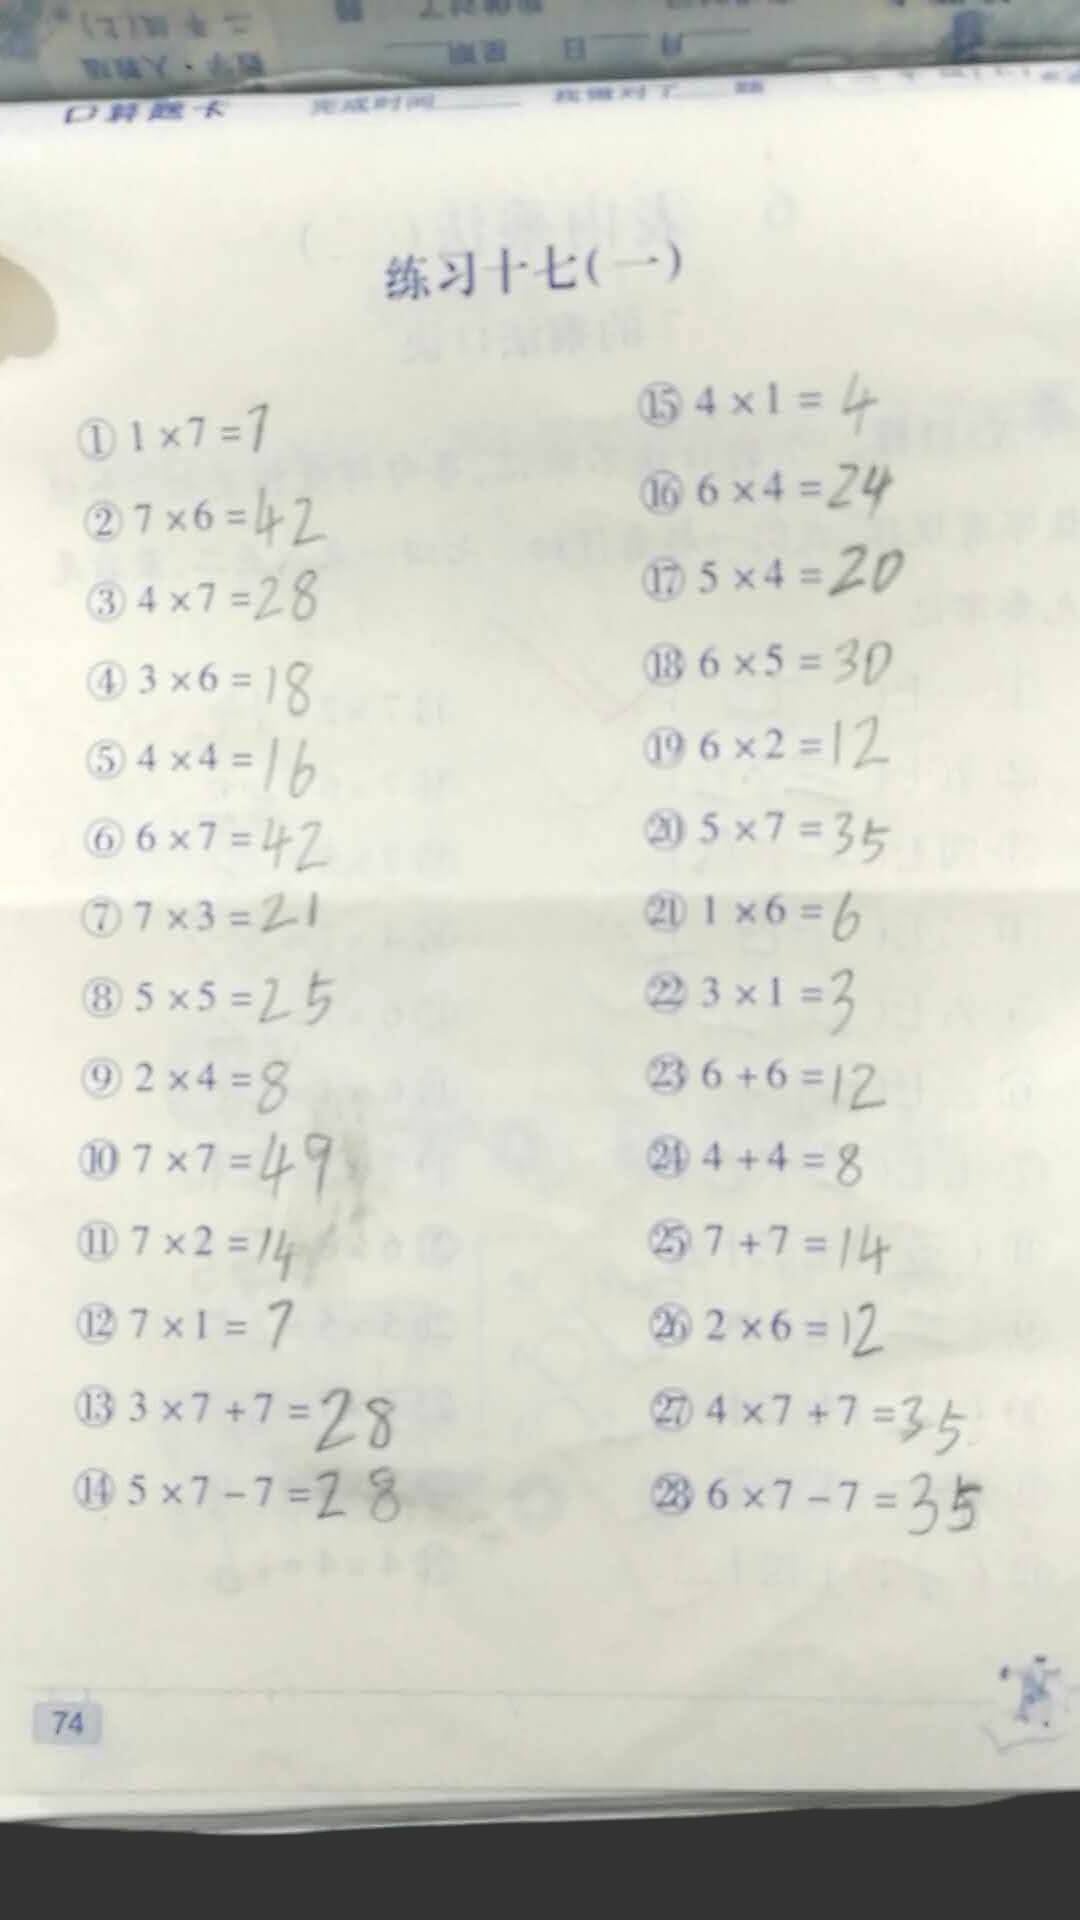 口算题卡 完成时间 我做对了 题
练习十七(一)
① 1×7=7
② 7×6=42
③ 4×7=28
④ 3×6=18
⑤ 4×4=16
⑥ 6×7=42
⑦ 7×3=21
⑧ 5×5=25
⑨ 2×4=8
⑩ 7×7=49
⑪ 7×2=14
⑫ 7×1=7
⑬ 3×7+7=28
⑭ 5×7-7=28
⑮ 4×1=4
⑯ 6×4=24
⑰ 5×4=20
⑱ 6×5=30
⑲ 6×2=12
⑳ 5×7=35
㉑ 1×6=6
㉒ 3×1=3
㉓ 6+6=12
㉔ 4+4=8
㉕ 7+7=14
㉖ 2×6=12
㉗ 4×7+7=35
㉘ 6×7-7=35
74